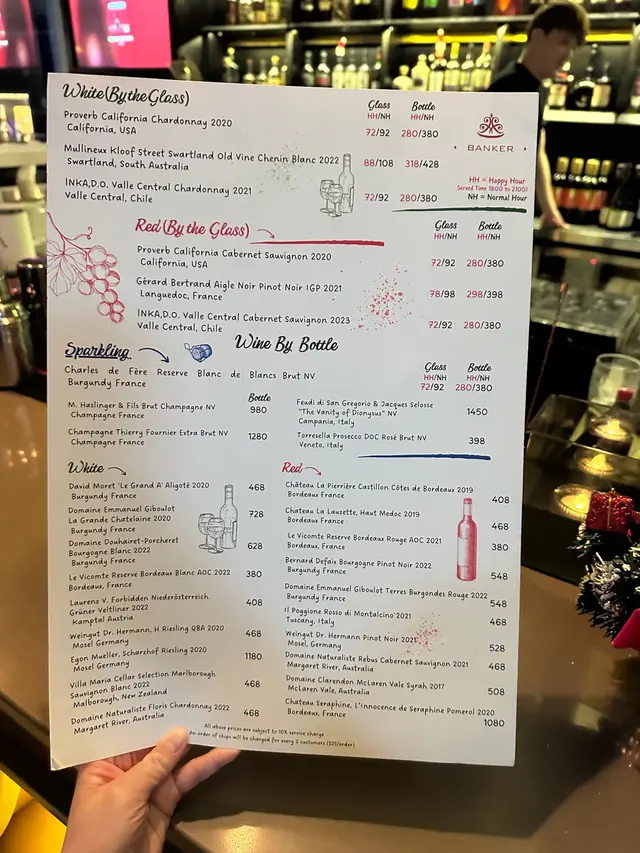 White(By the Glass)
Glass Bottle
HH/NH HH/NH
Proverb California Chardonnay 2020
California, USA
72/92 280/380
Mullineux Kloof Street Swartland Old Vine Chenin Blanc 2022
Swartland, South Australia
88/108 318/428
INKA,D.O. Valle Central Chardonnay 2021
Valle Central, Chile
72/92 280/380
BANKER
HH = Happy Hour
Served Time 1800 to 2100)
NH = Normal Hour
Red(By the Glass)
Glass Bottle
HH/NH HH/NH
Proverb California Cabernet Sauvignon 2020
California, USA
72/92 280/380
Gérard Bertrand Aigle Noir Pinot Noir IGP 2021
Languedoc, France
78/98 298/398
INKA,D.O. Valle Central Cabernet Sauvignon 2023
Valle Central, Chile
72/92 280/380
Wine By Bottle
Sparkling
Glass Bottle
HH/NH HH/NH
Charles de Fère Reserve Blanc de Blancs Brut NV
Burgundy France
72/92 280/380
Bottle
M. Haslinger & Fils Brut Champagne NV
Champagne France
980
Champagne Thierry Fournier Extra Brut NV
Champagne France
1280
Feudi di San Gregorio & Jacques Selosse
"The Vanity of Dionysus" NV
Campania, Italy
1450
Torresella Prosecco DOC Rosé Brut NV
Veneto, Italy
398
White
David Moret 'Le Grand A' Aligoté 2020
Burgundy France
468
Domaine Emmanuel Giboulot
La Grande Chatelaine 2020
Burgundy France
728
Domaine Douhairet-Porcheret
Bourgogne Blanc 2022
Burgundy France
628
Le Vicomte Reserve Bordeaux Blanc AOC 2022
Bordeaux, France
380
Laurenz V. Forbidden Niederösterreich
Grüner Veltliner 2022
Kamptal Austria
408
Weingut Dr. Hermann, H Riesling QBA 2020
Mosel Germany
468
Egon Mueller, Scharzhof Riesling 2020
Mosel Germany
1180
Villa Maria Cellar Selection Marlborough
Sauvignon Blanc 2022
Malborough, New Zealand
468
Domaine Naturaliste Floris Chardonnay 2022
Margaret River, Australia
468
Red
Château La Pierrière Castillon Côtes de Bordeaux 2019
Bordeaux France
408
Chateau La Lauzette, Haut Medoc 2019
Bordeaux France
468
Le Vicomte Reserve Bordeaux Rouge AOC 2021
Bordeaux, France
380
Bernard Defaix Bourgogne Pinot Noir 2022
Burgundy France
548
Domaine Emmanuel Giboulot Terres Burgondes Rouge 2022
Burgundy France
548
Il Poggione Rosso di Montalcino 2021
Tuscany, Italy
468
Weingut Dr. Hermann Pinot Noir 2021
Mosel, Germany
528
Domaine Naturaliste Rebus Cabernet Sauvignon 2021
Margaret River, Australia
468
Domaine Clarendon McLaren Vale Syrah 2017
McLaren Vale, Australia
508
Chateau Seraphine, L'innocence de Seraphine Pomerol 2020
Bordeaux, France
1080
All above prices are subject to 10% service charge
An order of chips will be charged for every 2 customers ($25/order)